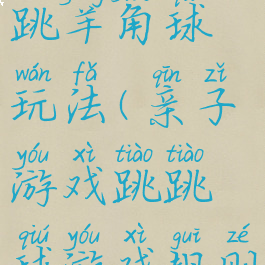 跳羊角球
wán fǎ qīn zǐ
玩法(亲子
yóu xì tiào tiào
游戏跳跳
qiú yóu xì guī zé
球游戏规则